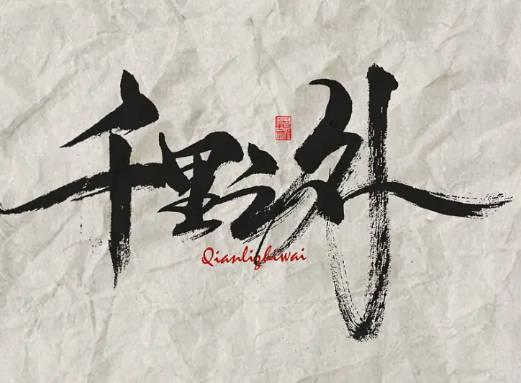 千里之外
Qianlizhiwai